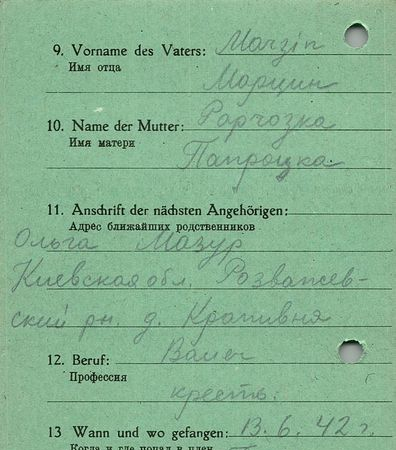 9. Vorname des Vaters: Marzin
Имя отца
Марцин
10. Name der Mutter:
Имя матери
11. Anschrift der nächsten Angehörigen:
Адрес ближайших родственников
Ольга Мазур
Киевская обл. Розважев-
ский рн. д. Крапивня
12. Beruf: Bauer
Профессия
кресть.
13 Wann und wo gefangen: 13.6.42 г.
Когда и где попал в плен